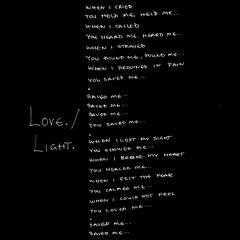 WHEN I CRIED
YOU HELD ME, HELD ME...
WHEN I CALLED
YOU HEARD ME, HEARD ME...
WHEN I STRAYED
YOU FOUND ME, FOUND ME...
WHEN I DROWNED IN PAIN
YOU SAVED ME...
.
SAVED ME...
SAVED ME...
SAVED ME...
YOU SAVED ME...
.
LOVE./
LIGHT.
WHEN I LOST MY SIGHT
YOU SHOWED ME...
WHEN I BROKE MY HEART
YOU HEALED ME...
WHEN I FELT THE FEAR
YOU CALMED ME...
WHEN I COULD NOT FEEL
YOU LOVED ME...
.
SAVED ME...
SAVED ME...